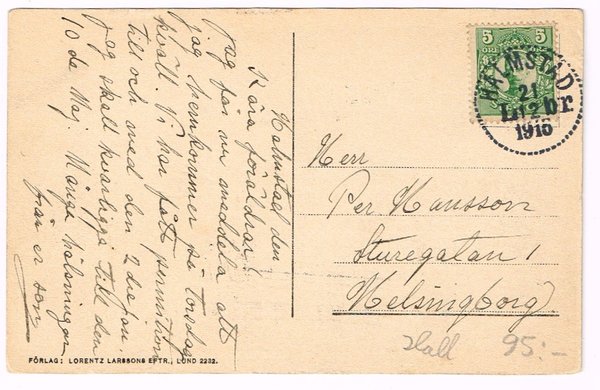 Halmstad den
Kära föräldrar!
jag får nu meddela att
jag hemkommer på torsdag
kväll. Vi har fått permition
till och med den 2 dre
jag skall kvarligga till den
10 de Maj. Många hälsningar
från er son
5 5
ÖRE
HALMSTAD
21
1916
Herr
Per Hansson
Sturegatan 1
Helsingborg
Hall 95:-
FÖRLAG: LORENTZ LARSSONS EFTR., LUND 2232.